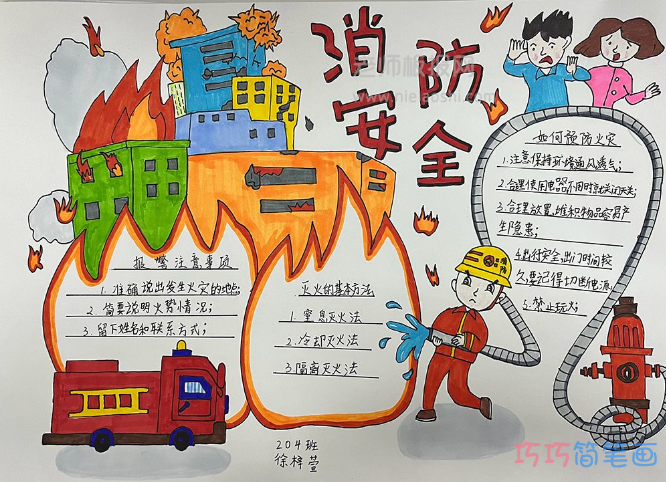 消防
安全
报警注意事项
1.准确说出发生火灾的地点;
2.简要说明火势情况;
3.留下姓名和联系方式;
灭火的基本方法
1.窒息灭火法
2.冷却灭火法
3.隔离灭火法
如何预防火灾
1.注意保持环境通风透气;
2.合理使用电器不用时就关闭开关;
3.合理放置,堆积物品容易产
生隐患;
4.出行安全,出门时间较
久要记得切断电源
5.禁止玩火;
消防
204班
徐梓萱
巧巧简笔画